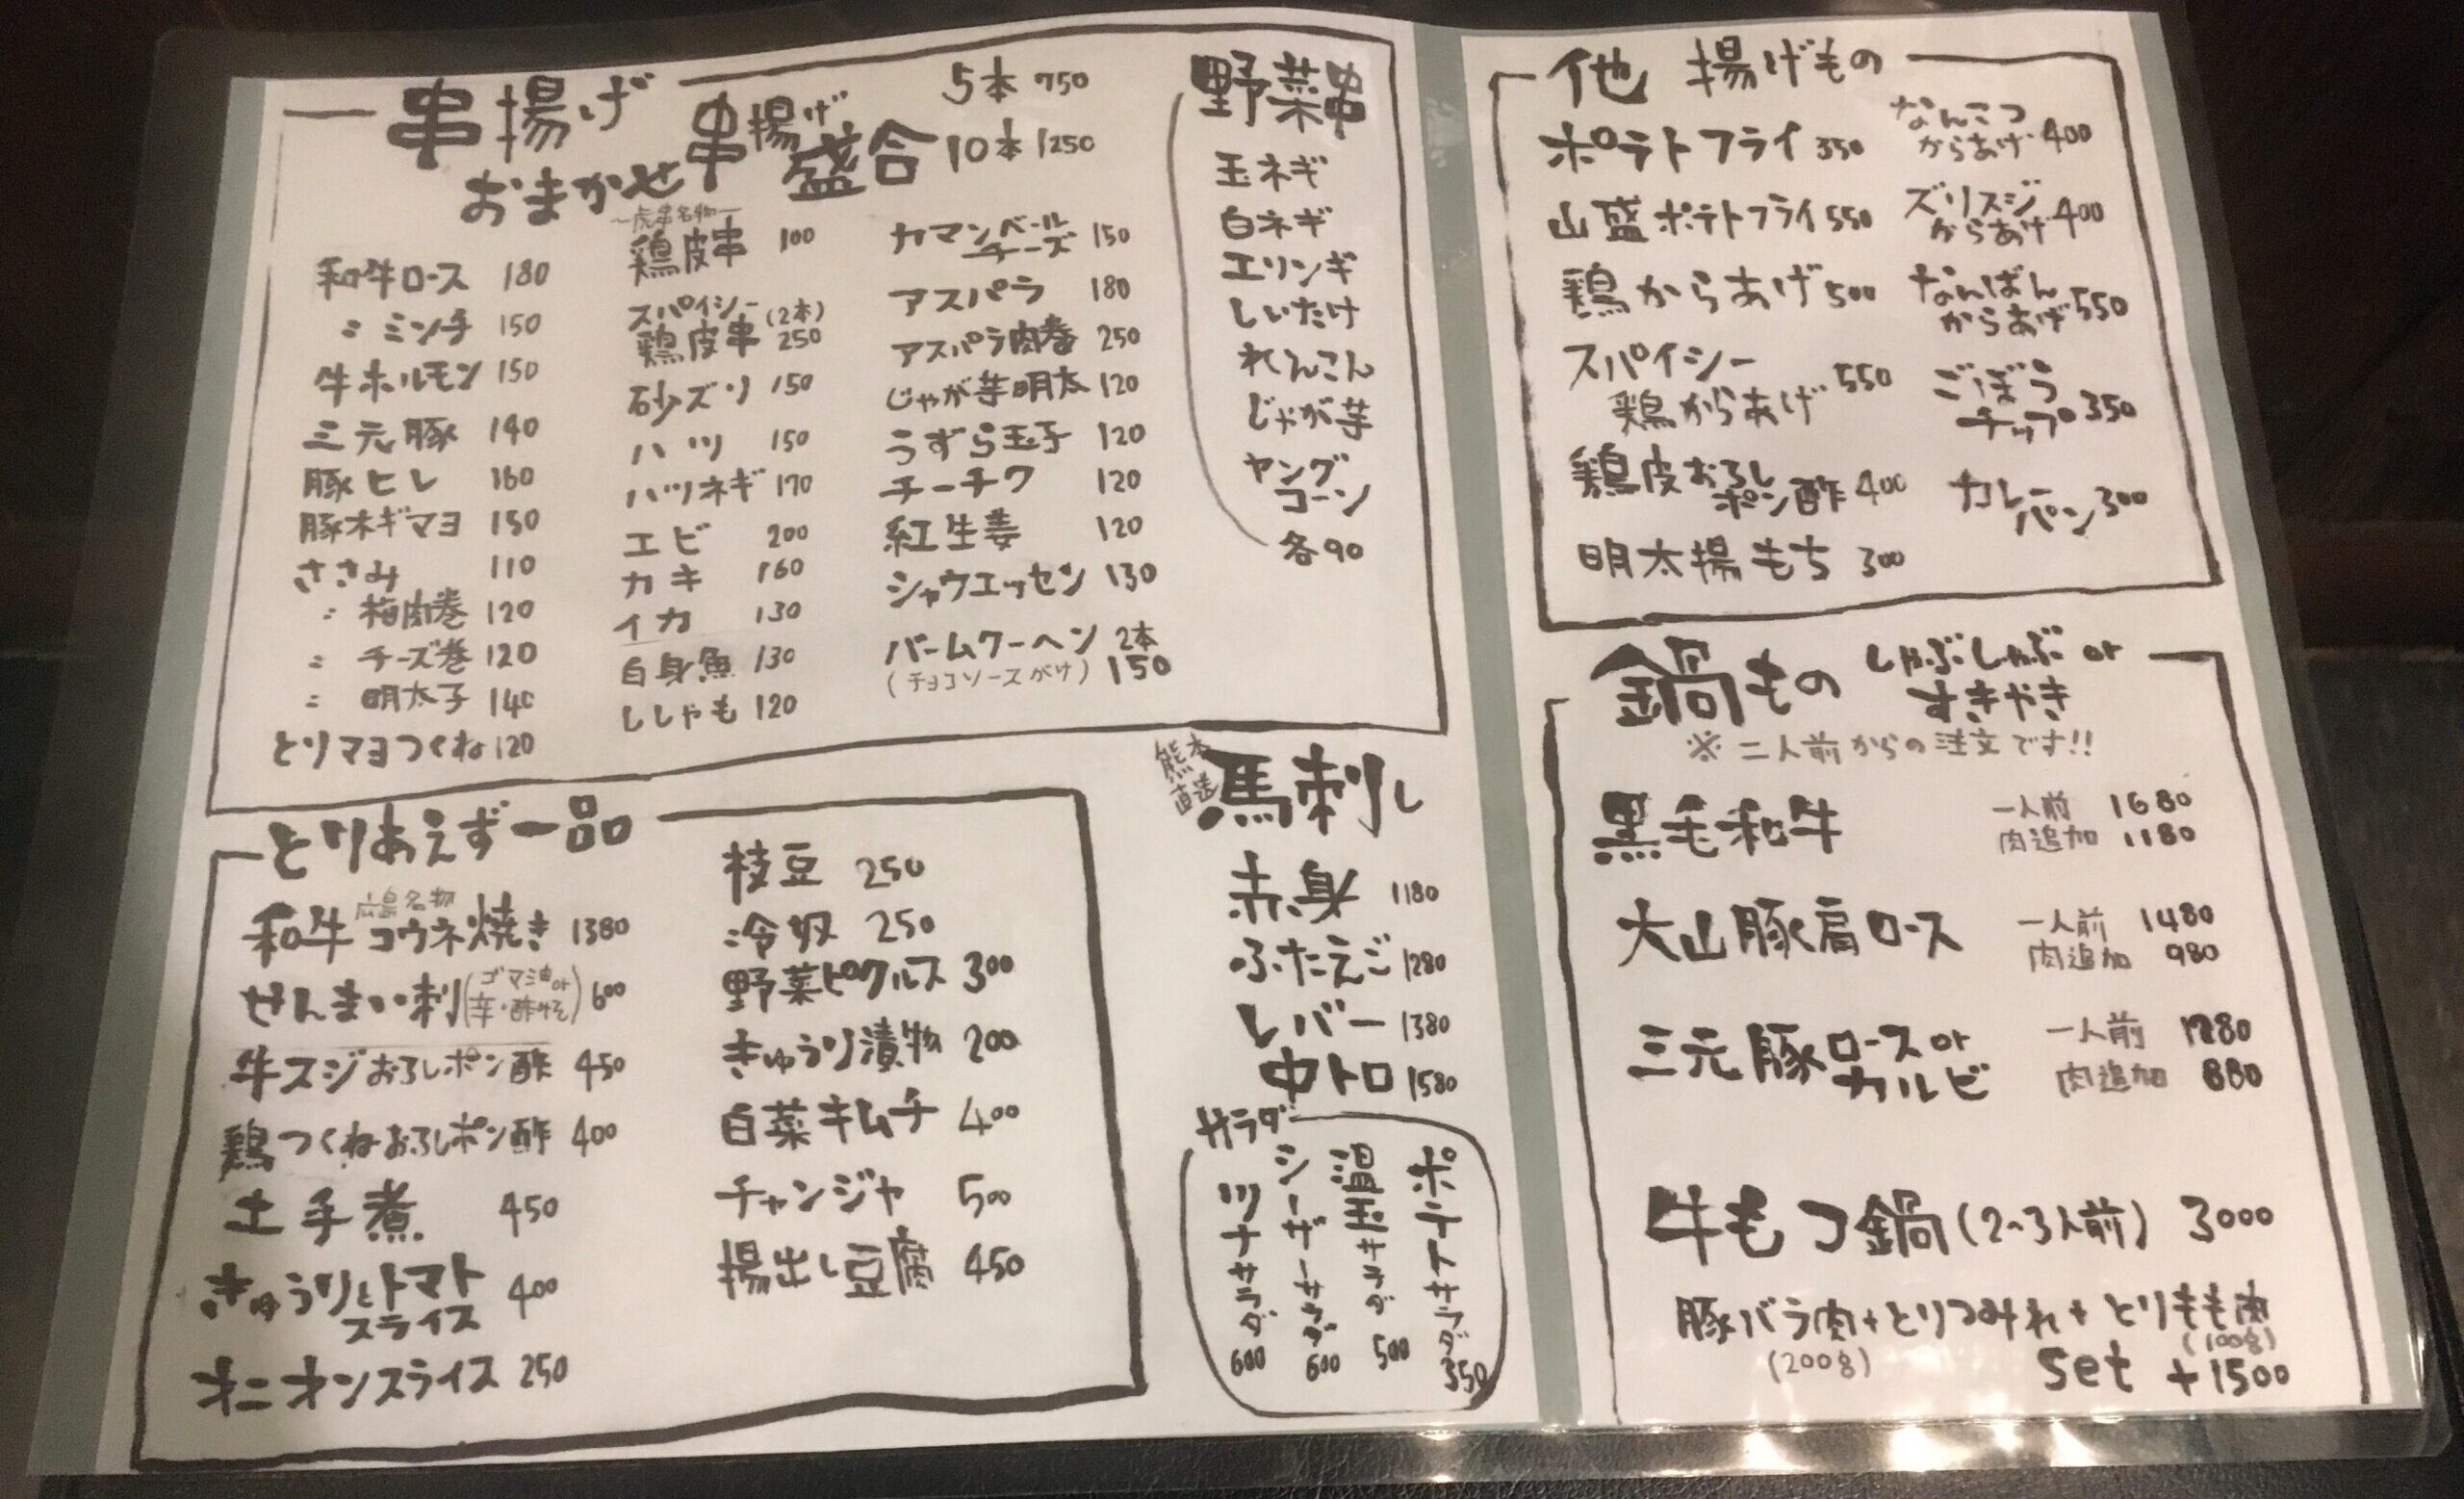 串揚げ
おまかせ串揚げ盛合
5本 750
10本 1250
和牛ロース 180
〃ミンチ 150
牛ホルモン 150
三元豚 140
豚ヒレ 160
豚ネギマヨ 150
ささみ 110
〃 梅肉巻 120
〃 チーズ巻 120
〃 明太子 140
とりマヨつくね 120
～虎串名物～
鶏皮串 100
スパイシー
鶏皮串 (2本) 250
砂ズリ 150
ハツ 150
ハツネギ 170
エビ 200
カキ 160
イカ 130
白身魚 130
ししゃも 120
カマンベール
チーズ 150
アスパラ 180
アスパラ肉巻 250
じゃが芋明太 120
うずら玉子 120
チーチク 120
紅生姜 120
シャウエッセン 130
バームクーヘン 2本
(チョコソースがけ) 150
野菜串
玉ネギ
白ネギ
エリンギ
しいたけ
れんこん
じゃが芋
ヤング
コーン
各90
とりあえず一品
広島名物
和牛コウネ焼き 1380
せんまい刺(ゴマ油or
辛・酢みそ) 600
牛スジおろしポン酢 450
鶏つくねおろしポン酢 400
土手煮 450
きゅうりとトマト
スライス 400
オニオンスライス 250
枝豆 250
冷奴 250
野菜ピクルス 300
きゅうり漬物 200
白菜キムチ 400
チャンジャ 500
揚出し豆腐 450
熊本
直送
馬刺し
赤身 1180
ふたえご 1280
レバー 1380
中トロ 1580
サラダ
ポテトサラダ 350
温玉サラダ 500
シーザーサラダ 600
ツナサラダ 600
他 揚げもの
ポテトフライ 350
山盛ポテトフライ 550
鶏からあげ 500
スパイシー
鶏からあげ 550
鶏皮おろし
ポン酢 400
明太揚もち 300
なんこつ
からあげ 400
ズリスジ
からあげ 400
なんばん
からあげ 550
ごぼう
チップ 350
カレー
パン 300
鍋もの しゃぶしゃぶ or
すきやき
※ 二人前からの注文です!!
黒毛和牛 一人前 1680
肉追加 1180
大山豚肩ロース 一人前 1480
肉追加 980
三元豚ロースor
カルビ
一人前 1280
肉追加 880
牛もつ鍋 (2~3人前) 3000
豚バラ肉+とりつみれ+とりもも肉
(200g) (100g)
set +1500